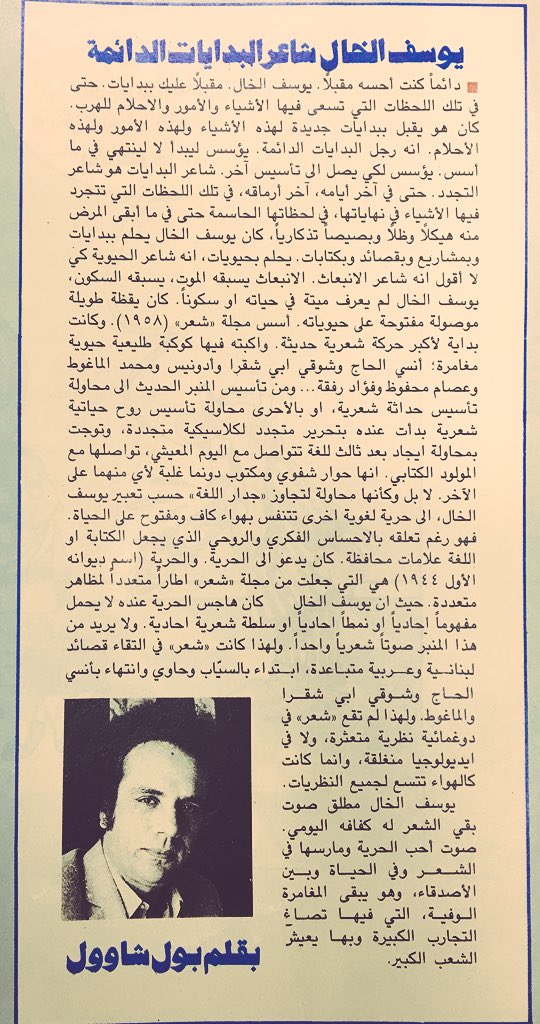 يوسف الخال شاعر البدايات الدائمة
دائماً كنت أحسه مقبلاً. يوسف الخال. مقبلاً عليك ببدايات. حتى
في تلك اللحظات التي تسعى فيها الأشياء والأمور والاحلام للهرب.
كان هو يقبل ببدايات جديدة لهذه الأشياء ولهذه الأمور ولهذه
الأحلام. انه رجل البدايات الدائمة. يؤسس ليبدأ لا لينتهي في ما
أسس. يؤسس لكي يصل الى تأسيس آخر. شاعر البدايات هو شاعر
التجدد. حتى في آخر أيامه، آخر أرماقه، في تلك اللحظات التي تتجرد
فيها الأشياء في نهاياتها، في لحظاتها الحاسمة حتى في ما أبقى المرض
منه هيكلاً وظلاً وبصيصاً تذكارياً، كان يوسف الخال يحلم ببدايات
وبمشاريع وبقصائد وبكتابات. يحلم بحيويات، انه شاعر الحيوية كي
لا أقول انه شاعر الانبعاث. الانبعاث يسبقه الموت، يسبقه السكون،
يوسف الخال لم يعرف ميتة في حياته او سكوناً. كان يقظة طويلة
موصولة مفتوحة على حيوياته. أسس مجلة «شعر» (١٩٥٨). وكانت
بداية لأكبر حركة شعرية حديثة. واكبته فيها كوكبة طليعية حيوية
مغامرة؛ أنسي الحاج وشوقي ابي شقرا وأدونيس ومحمد الماغوط
وعصام محفوظ وفؤاد رفقة... ومن تأسيس المنبر الحديث الى محاولة
تأسيس حداثة شعرية، او بالأحرى محاولة تأسيس روح حياتية
شعرية بدأت عنده بتحرير متجدد لكلاسيكية متجددة، وتوجت
بمحاولة ايجاد بعد ثالث للغة تتواصل مع اليوم المعيشي، تواصلها مع
المولود الكتابي. انها حوار شفوي ومكتوب دونما غلبة لأي منهما على
الآخر. لا بل وكأنها محاولة لتجاوز «جدار اللغة» حسب تعبير يوسف
الخال، الى حرية لغوية اخرى تتنفس بهواء كاف ومفتوح على الحياة.
فهو رغم تعلقه بالاحساس الفكري والروحي الذي يجعل الكتابة او
اللغة علامات محافظة. كان يدعو الى الحرية. والحرية (اسم ديوانه
الأول ١٩٤٤) هي التي جعلت من مجلة «شعر» اطاراً متعدداً لمظاهر
متعددة. حيث ان يوسف الخال كان هاجس الحرية عنده لا يحمل
مفهوماً إحادياً او نمطاً احادياً او سلطة شعرية احادية. ولا يريد من
هذا المنبر صوتاً شعرياً واحداً. ولهذا كانت «شعر» في التقاء قصائد
لبنانية وعربية متباعدة، ابتداء بالسيّاب وحاوي وانتهاء بأنسي
الحاج وشوقي ابي شقرا
والماغوط. ولهذا لم تقع «شعر» في
دوغمائية نظرية متعثرة، ولا في
ايديولوجيا منغلقة، وانما كانت
كالهواء تتسع لجميع النظريات.
يوسف الخال مطلق صوت
بقي الشعر له كفافه اليومي.
صوت أحب الحرية ومارسها في
الشعر وفي الحياة وبين
الأصدقاء، وهو يبقى المغامرة
الوفية، التي فيها تصاغ
التجارب الكبيرة وبها يعيش
الشعب الكبير.
بقلم بول شاوول